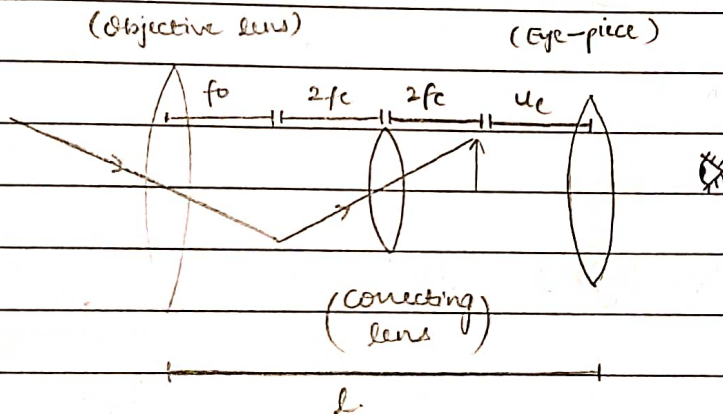 (Objective lens)
(Eye-piece)
fo
2fc
2fc
ue
(Correcting
lens)
l.